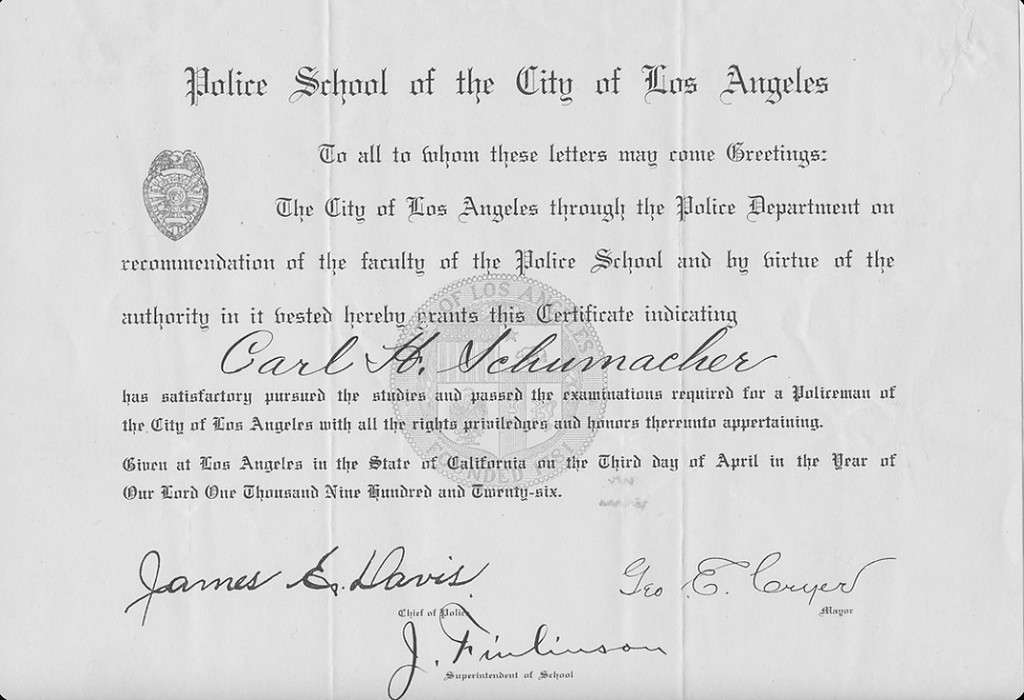 Police School of the City of Los Angeles
To all to whom these letters may come Greetings:
The City of Los Angeles through the Police Department on
recommendation of the faculty of the Police School and by virtue of the
authority in it vested hereby grants this Certificate indicating
Carl H. Schumacher
has satisfactory pursued the studies and passed the examinations required for a Policeman of
the City of Los Angeles with all the rights priviledges and honors thereunto appertaining.
Given at Los Angeles in the State of California on the Third day of April in the Year of
Our Lord One Thousand Nine Hundred and Twenty-six.
OF LOS ANGELES
FOUNDED 1781
James E. Davis
Chief of Police
Geo E. Cryer
Mayor
J. Finlinson
Superintendent of School